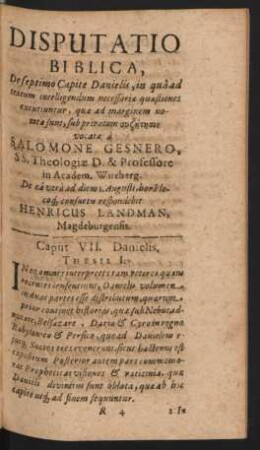 DISPUTATIO
BIBLICA,
De septimo Capite Danielis, in quâ ad
textum intelligendum necessariæ quæstiones
excutiuntur, quæ ad marginem no-
tatæ sunt, sub privatam συζήτησιν
vocata à
SALOMONE GESNERO,
SS. Theologiæ D. & Professore
in Academ. Witeberg.
De eâ verò ad diem Augusti, horâ lo-
coq́; consueto respondebit
HENRICUS LANDMAN,
Magdeburgensis.
Caput VII. Danielis,
THESIS I.
INter omnes interpretes tam veteres quàm
recentiores Danielis volumen
in duas partes esse distributum, quarum
prior continet historias quæ sub Nebucad-
nezare, Belsazare, Dario & Cyro in regno
Babylonico & Persico, quoad Danielem
Socios
expositum Posterior autem pars
rat Propheticas visiones & vaticinia, quæ
Danieli divinitus sunt oblata, quæ ab hoc
capite usq́; ad finem sequuntur.
R 4 2 In